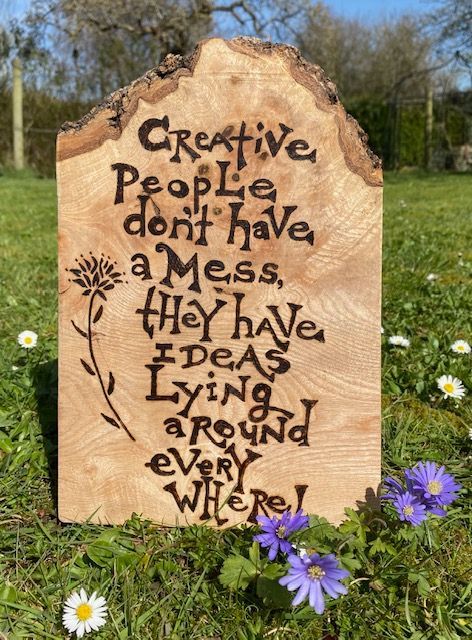 Creative
People
don't have
a Mess,
they have
IDEAS
Lying
around
every
WHERE!